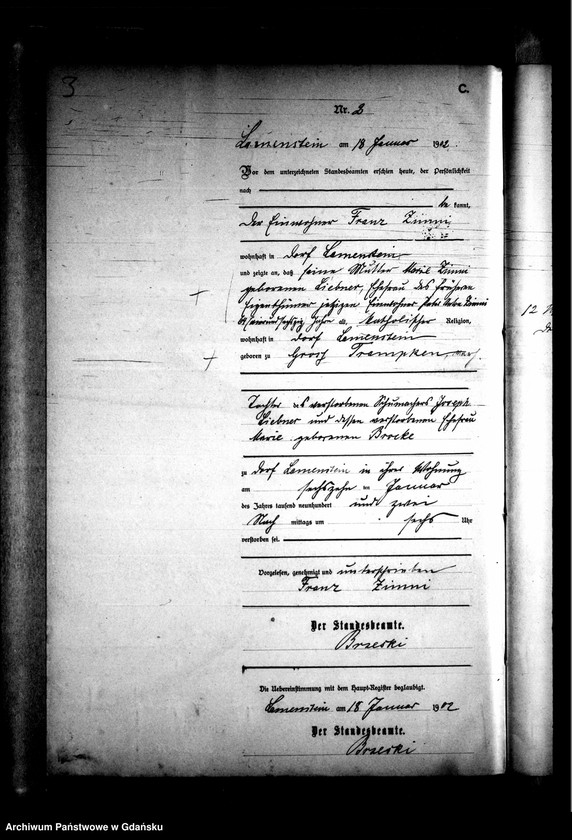 3
C.
Nr. 2
Lamenstein am 18 Januar 1902.
Vor dem unterzeichneten Standesbeamten erschien heute, der Persönlichkeit
nach
be kannt,
der Einwohner Franz Zimni
wohnhaft in Dorf Lamenstein
und zeigte an, daß seine Mutter Marie Zimni
geborenen Liebner, Ehefrau des früheren
Eigenthümers jetzigen Einwohner Zimni
Jahre alt, katholischer Religion,
wohnhaft in Dorf Lamenstein
geboren zu Grosch Trampken
Tochter des verstorbenen Schumachers Joseph
Liebner und dessen verstorbenen Ehefrau
Marie geborenen Brocke
zu Dorf Lamenstein in ihrer Wohnung
am sechszehn ten Januar
des Jahres tausend neunhundert und zwei
Nach mittags um sechs Uhr
verstorben sei.
Vorgelesen, genehmigt und unterschrieben
Franz Zimni
Der Standesbeamte.
Brzeski
Die Uebereinstimmung mit dem Haupt-Register beglaubigt.
Lamenstein am 18 Januar 1902
Der Standesbeamte.
Brzeski
12
Archiwum Państwowe w Gdańsku